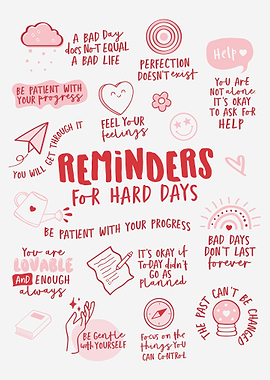 A BAD DAY
does NOT EQUAL
A BAD LIFE
PERFECTION
DOESN'T exist
Help
YOU ARE
NOT alone
IT'S OKAY
TO ASK FOR
HELP
BE PATIENT WITH
YOUR progress
FEEL YOUR
feelings
YOU WILL GET THROUGH IT
REMINDERS
FOR HARD DAYS
BE PATIENT WITH YOUR PROGRESS
BAD DAYS
DON'T LAST
forever
You are
LOVABLE
AND ENOUGH
always
IT'S OKAY if
TODAY didn't
GO AS
Planned
THE PAST CAN'T BE CHANGED
BE Gentle
with YOURSELF
Focus on the
THINGS YOU
CAN CONTROL